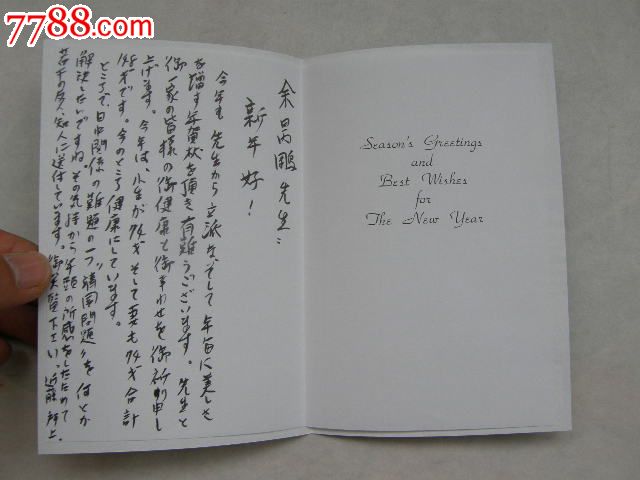 7788.com
余昌鵬先生:
新年好!
今年も先生から立派なそして年毎に美しさ
を増す年賀状を頂き有難うございます。先生と
御一家の皆様の御健康と御幸わせを御祈り申し
上げます。今年は、小生が74才そして妻も74才合計
148才です。今のところ健康にしています。
ところで、日中関係の難題の一つ〝靖国問題〟を何とか
解決したいですね。その気持から年頭の所感をしたためて
若干の友人知人に送付しています。御笑覧下さい、近藤 拝上.
Season's Greetings
and
Best Wishes
for
The New Year